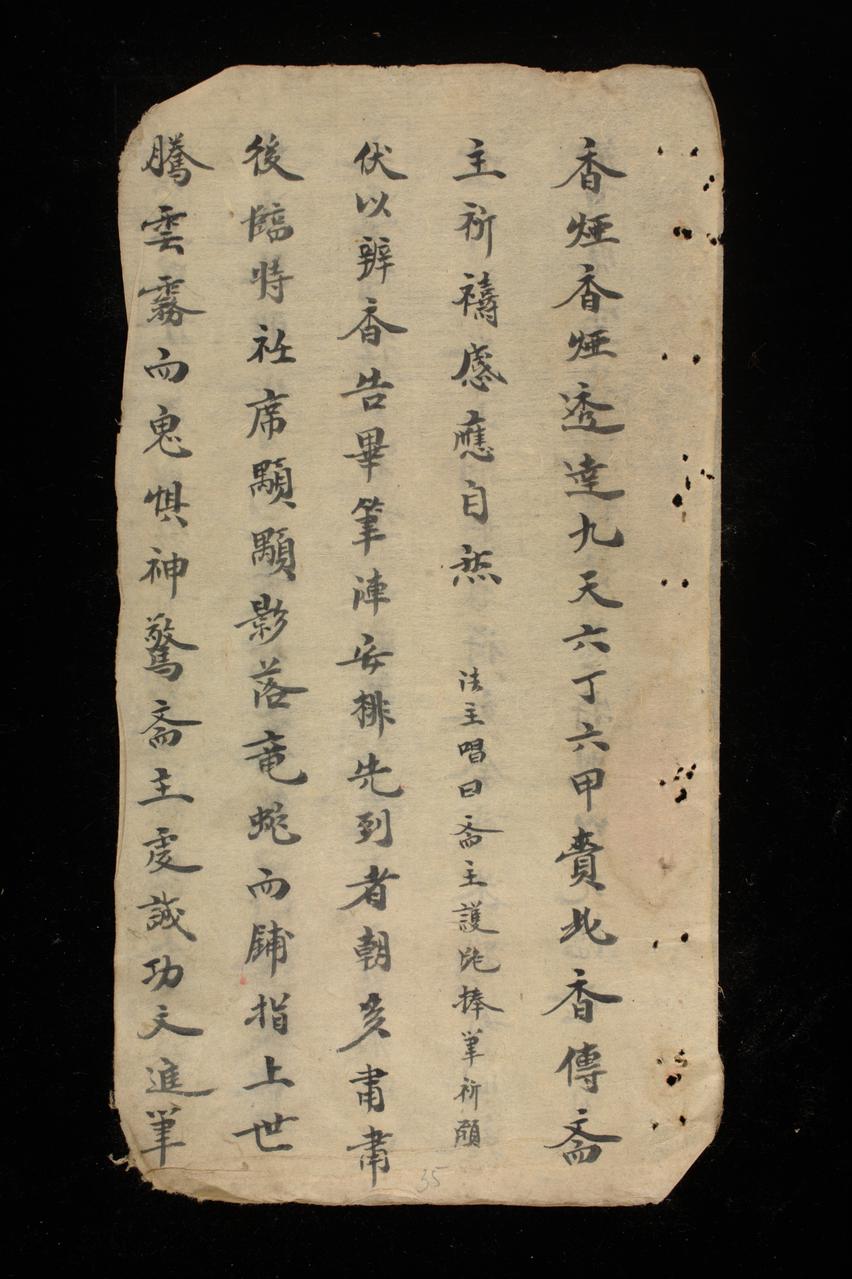 香烟香烟透達九天六丁六甲賫此香傳斋
主祈禱感應自然 法主唱曰斋主護陁捧筆祈願
伏以辦香告畢筆陣安排先到者朝亥肅肅
後臨时社席顯顯影落竜蛇而鋪指上世
騰雲霧而鬼惧神驚斋主虔誠功文進筆
35